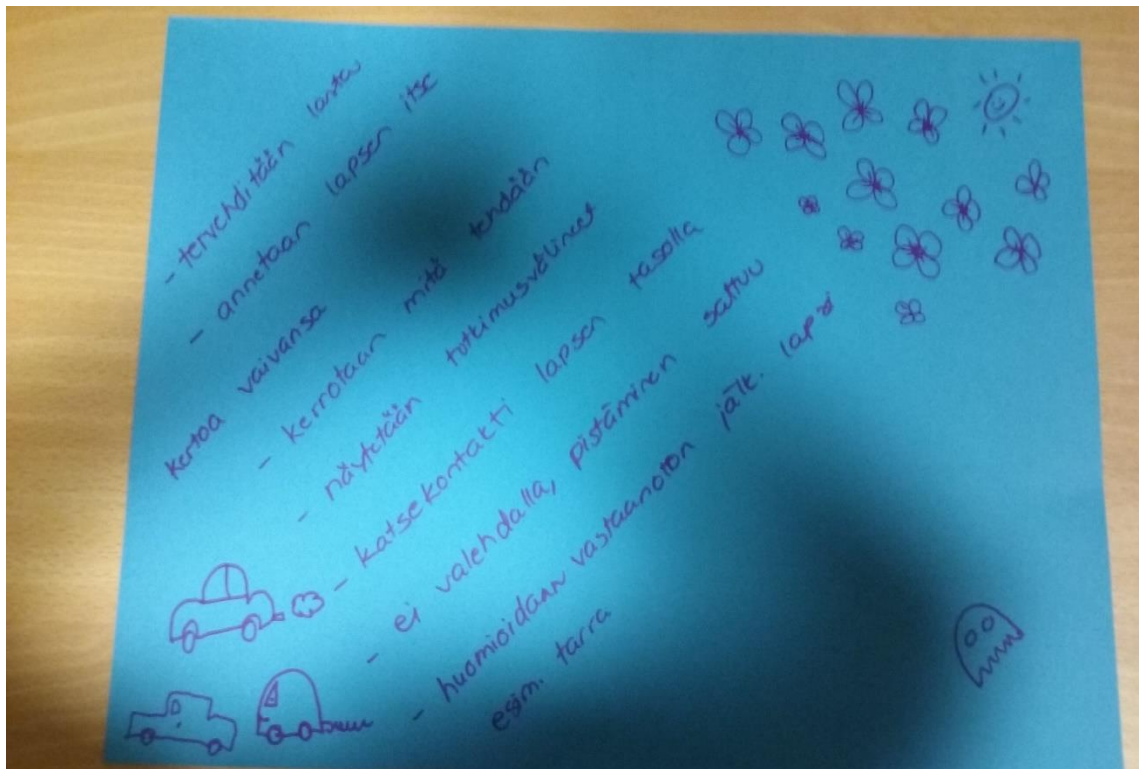 - tervehditään lasta
- annetaan lapsen itse
kertoa vaivansa
- kerrotaan mitä tehdään
- näytetään tutkimusvälineet
- katsekontakti lapsen tasolla
- ei valehdalla, pistäminen sattuu
- huomioidaan vastaanoton jälk. lapsi
esim. tarra